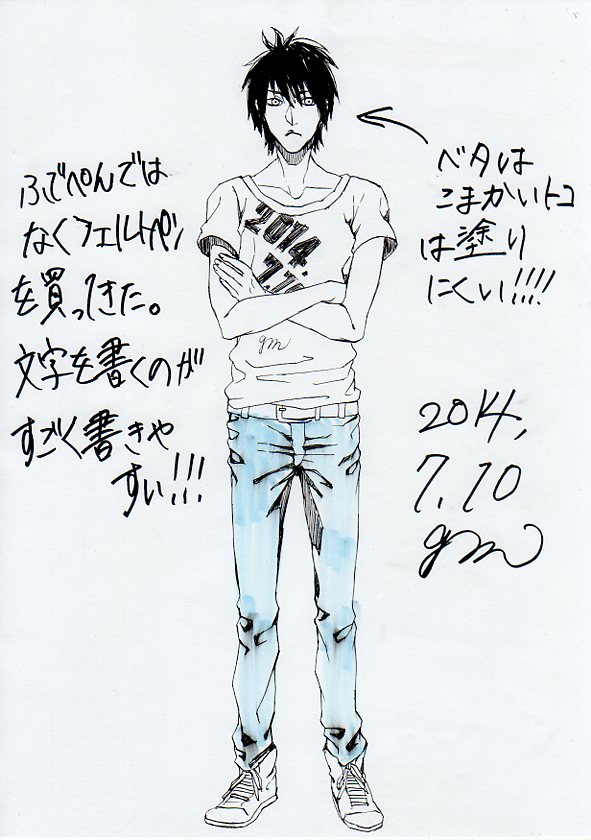 ふでぺんでは
なくフェルトペン
を買ってきた。
文字を書くのが
すごく書きや
すい!!!
ベタは
こまかいトコ
は塗り
にくい!!!!
2014.
7.10
gm
2014,
7,10
gm